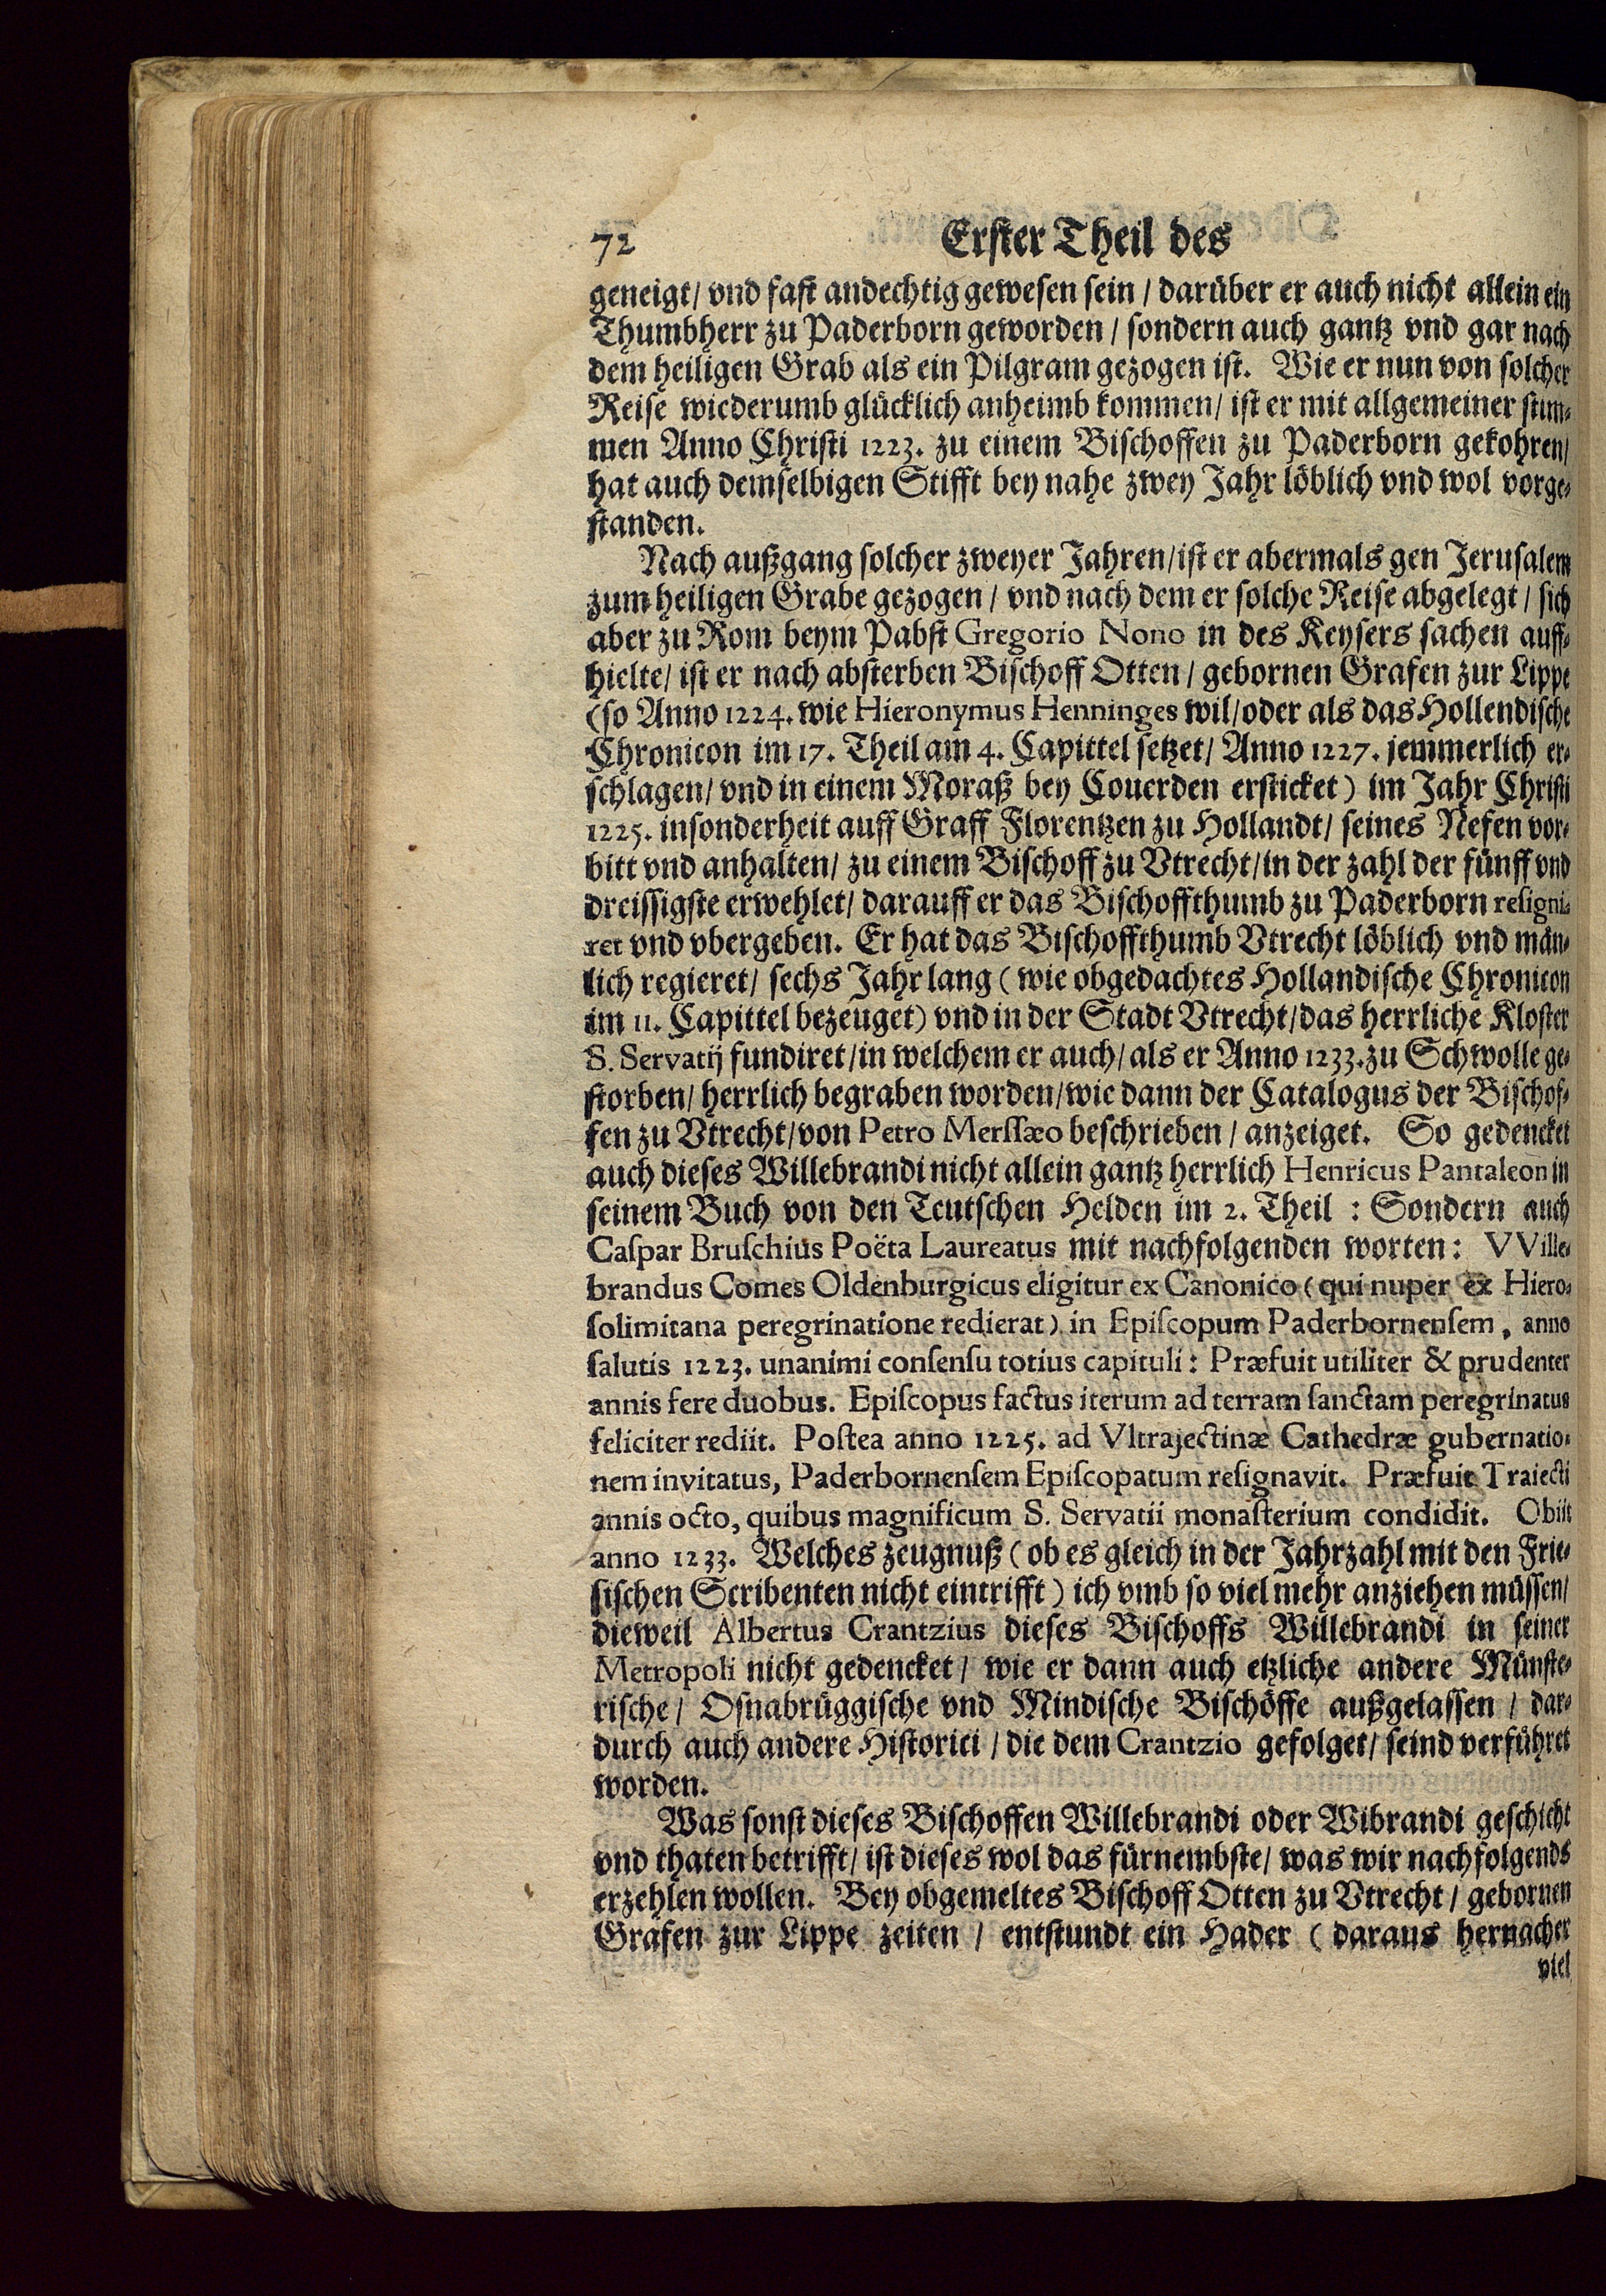 72 Erster Theil des
geneigt/ vnd fast andechtig gewesen sein / darüber er auch nicht allein ein
Thumbherr zu Paderborn geworden / sondern auch gantz vnd gar nach
dem heiligen Grab als ein Pilgram gezogen ist. Wie er nun von solcher
Reise wiederumb glücklich anheimb kommen/ ist er mit allgemeiner stim-
men Anno Christi 1223. zu einem Bischoffen zu Paderborn gekohren/
hat auch demselbigen Stifft bey nahe zwey Jahr löblich vnd wol vorge-
standen.
Nach außgang solcher zweyer Jahren/ist er abermals gen Jerusalem
zum heiligen Grabe gezogen / vnd nach dem er solche Reise abgelegt / sich
aber zu Rom beym Pabst Gregorio Nono in des Keysers sachen auff-
hielte/ ist er nach absterben Bischoff Otten / gebornen Grafen zur Lippe
(so Anno 1224. wie Hieronymus Henninges wil/oder als das Hollendische
Chronicon im 17. Theil am 4. Capittel setzet/ Anno 1227. jemmerlich er-
schlagen/ vnd in einem Moraß bey Couerden ersticket) im Jahr Christi
1225. insonderheit auff Graff Florentzen zu Hollandt/ seines Nefen vor-
bitt vnd anhalten/ zu einem Bischoff zu Vtrecht/in der zahl der fünff vnd
dreissigste erwehlet/ darauff er das Bischoffthumb zu Paderborn resigni-
ret vnd vbergeben. Er hat das Bischoffthumb Vtrecht löblich vnd män-
lich regieret/ sechs Jahr lang (wie obgedachtes Hollandische Chronicon
im 11. Capittel bezeuget) vnd in der Stadt Vtrecht/das herrliche Kloster
S. Servatij fundiret/in welchem er auch/ als er Anno 1233. zu Schwolle ge-
storben/ herrlich begraben worden/wie dann der Catalogus der Bischof-
fen zu Vtrecht/von Petro Merssæo beschrieben / anzeiget. So gedencket
auch dieses Willebrandi nicht allein gantz herrlich Henricus Pantaleon in
seinem Buch von den Teutschen Helden im 2. Theil : Sondern auch
Caspar Bruschius Poëta Laureatus mit nachfolgenden worten: VVille-
brandus Comes Oldenburgicus eligitur ex Canonico (qui nuper ex Hiero-
solimitana peregrinatione redierat) in Episcopum Paderbornensem, anno
salutis 1223. unanimi consensu totius capituli: Præfuit utiliter & prudenter
annis fere duobus. Episcopus factus iterum ad terram sanctam peregrinatus
feliciter rediit. Postea anno 1225. ad Vltrajectinæ Cathedræ gubernatio-
nem invitatus, Paderbornensem Episcopatum resignavit. Præfuit Traiecti
annis octo, quibus magnificum S. Servatii monasterium condidit. Obiit
anno 1233. Welches zeugnuß (ob es gleich in der Jahrzahl mit den Frie-
sischen Scribenten nicht eintrifft) ich vmb so viel mehr anziehen müssen/
dieweil Albertus Crantzius dieses Bischoffs Willebrandi in seiner
Metropoli nicht gedencket / wie er dann auch etzliche andere Münste-
rische / Osnabrüggische vnd Mindische Bischöffe außgelassen / dar-
durch auch andere Historici / die dem Crantzio gefolget/ seind verführet
worden.
Was sonst dieses Bischoffen Willebrandi oder Wibrandi geschicht
vnd thaten betrifft/ ist dieses wol das fürnembste/ was wir nachfolgends
erzehlen wollen. Bey obgemeltes Bischoff Otten zu Vtrecht / gebornen
Grafen zur Lippe zeiten / entstundt ein Hader ( daraus hernacher
viel